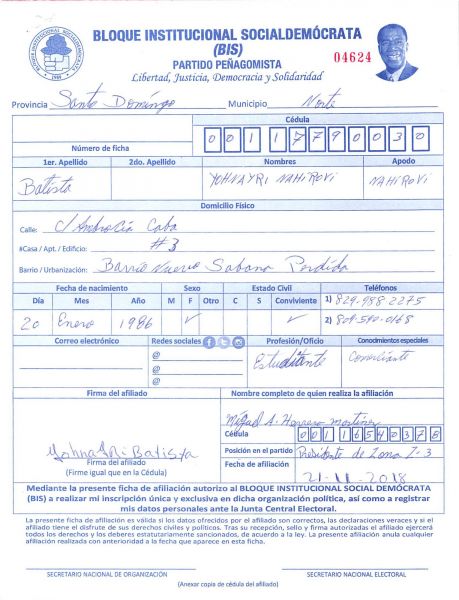 BLOQUE INSTITUCIONAL SOCIALDEMÓCRATA
(BIS)
PARTIDO PEÑAGOMISTA
Libertad, Justicia, Democracia y Solidaridad
04624
Provincia Santo Domingo Municipio Norte
Cédula
Número de ficha 00117790030
1er. Apellido 2do. Apellido Nombres Apodo
Batista YOHNAYRI NAHIROVI NAHIROVI
Domicilio Físico
Calle: C/ Ambrocia Caba
#Casa / Apt. / Edificio: #3
Barrio / Urbanización: Barrio Nuevo Sabana Perdida
Fecha de nacimiento Sexo Estado Civil Teléfonos
Día Mes Año M F Otro C S Conviviente 1) 829-988-2275
20 Enero 1986 ✓ ✓ 2) 809-590-0168
Correo electrónico Redes sociales Profesión/Oficio Conocimientos especiales
@ Estudiante Comerciante
@
@
Firma del afiliado Nombre completo de quien realiza la afiliación
Miguel A. Herrera Martinez
Cédula 00116540378
Batista Posición en el partido Presidente de Zona Z-3
Firma del afiliado Fecha de afiliación
(Firme igual que en la Cédula) 21-11-2018
Mediante la presente ficha de afiliación autorizo al BLOQUE INSTITUCIONAL SOCIAL DEMÓCRATA
(BIS) a realizar mi inscripción única y exclusiva en dicha organización política, así como a registrar
mis datos personales ante la Junta Central Electoral.
La presente ficha de afiliación es válida si los datos ofrecidos por el afiliado son correctos, las declaraciones veraces y si el
afiliado tiene el disfrute de sus derechos civiles y políticos. Tras su recepción, sello y firma autorizadas el afiliado ejercerá
todos los derechos y los deberes estatutariamente sancionados, de acuerdo a la ley. La presente afiliación anula cualquier
afiliación realizada con anterioridad a la fecha que aparece en esta ficha.
SECRETARIO NACIONAL DE ORGANIZACIÓN SECRETARIO NACIONAL ELECTORAL
(Anexar copia de cédula del afiliado)